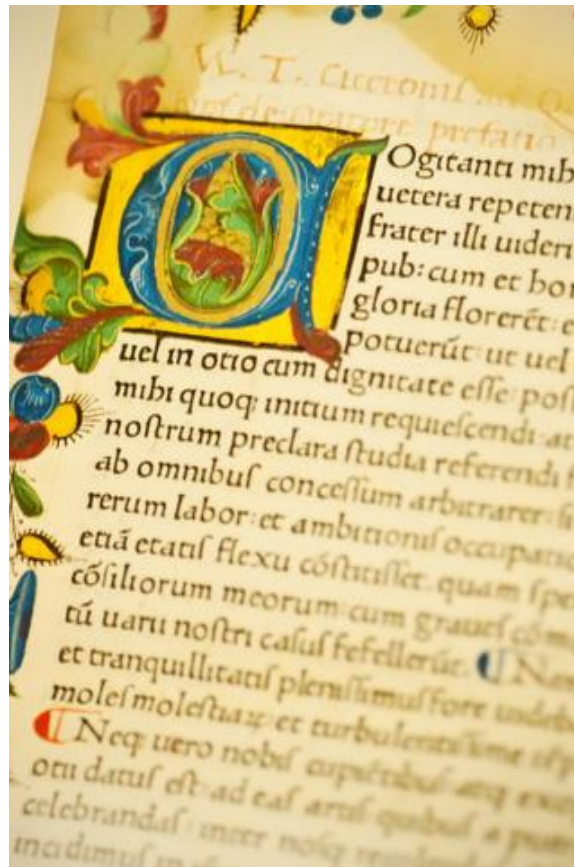 Ciceronis
de oratore prefatio
Ogitanti mihi
uetera repeten
frater illi uideri
pub: cum et hon
gloria florerēt: e
potuerūt: ut uel
uel in otio cum dignitate eſſe: poſ
mihi quoq; initium requieſcendi: at
noſtrum preclara ſtudia referendi f
ab omnibuſ conceſſum arbitrarer: ſi
rerum labor: et ambitioniſ occupatio
etiā etatiſ flexu cōſtitiſſet. quam ſpe
cōſiliorum meorum: cum graueſ
tū uarii noſtri caſuſ fefellerūt. Nam
et tranquillitatiſ pleniſſimuſ fore uideb
moleſ moleſtiaꝝ: et turbulentiſſime
Neq; uero nobiſ cupiētibuſ atq;
otii datuſ eſt: ad eaſ artiſ quibuſ a
celebrandaſ: inter noſq;
incidimuſ in